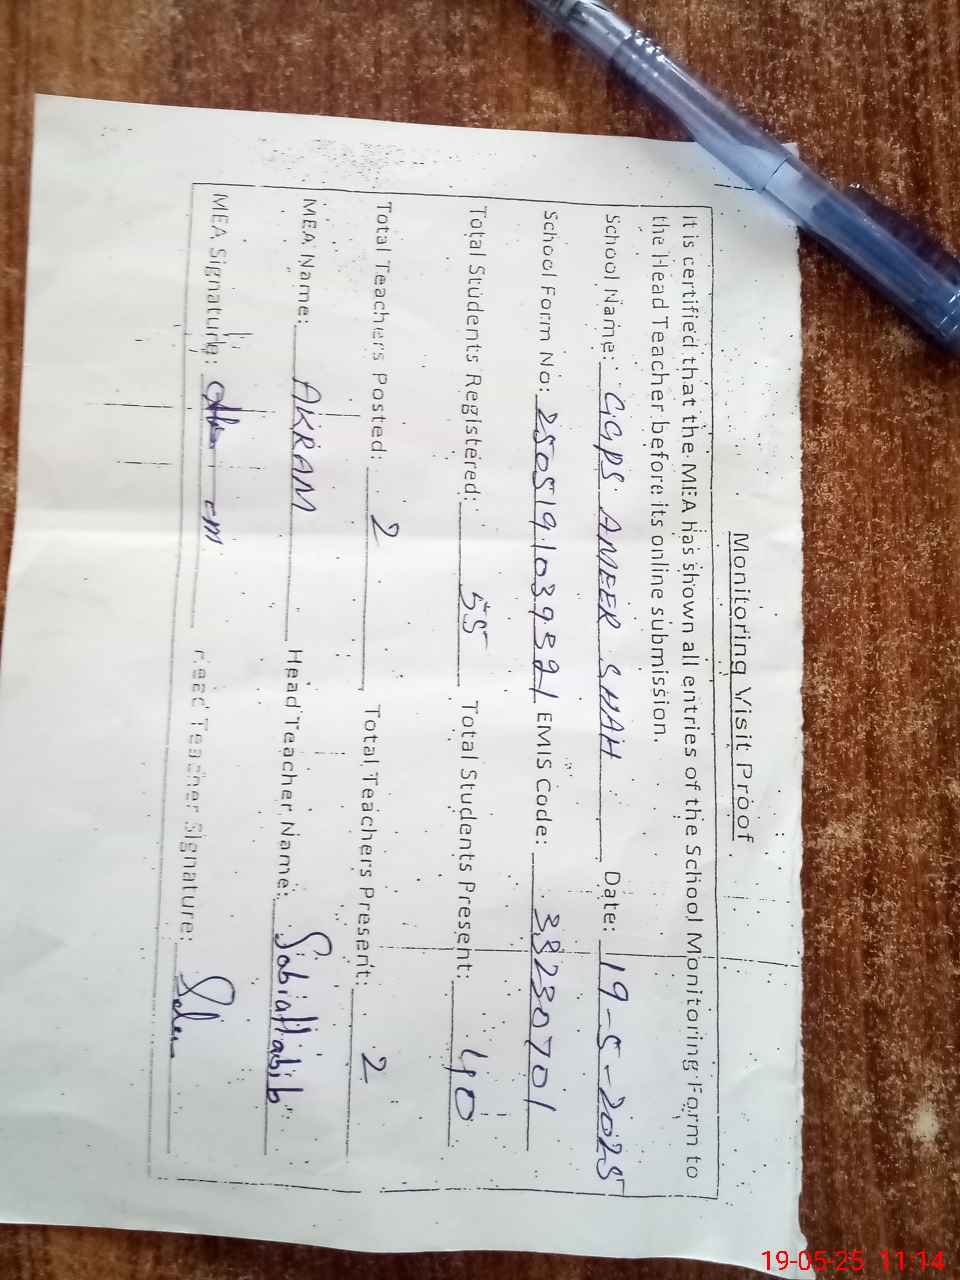 Monitoring Visit Proof
It is certified that the MEA has shown all entries of the School Monitoring Form to
the Head Teacher before its online submission.
School Name: GGPS AMEER SHAH Date: 19-5-2025
School Form No: 2505191039521 EMIS Code: 38230701
Total Students Registered: 55 Total Students Present: 40
Total Teachers Posted: 2 Total Teachers Present: 2
MEA Name: AKRAM Head Teacher Name: Sobia Habib
MEA Signature: Head Teacher Signature:
19-05-25 11:14